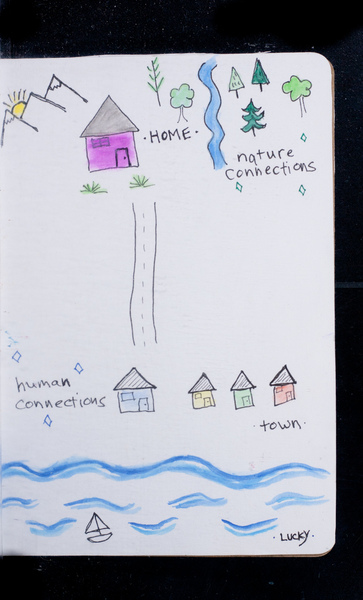 ·HOME·
nature
connections
human
connections
·town·
·LUCKY·